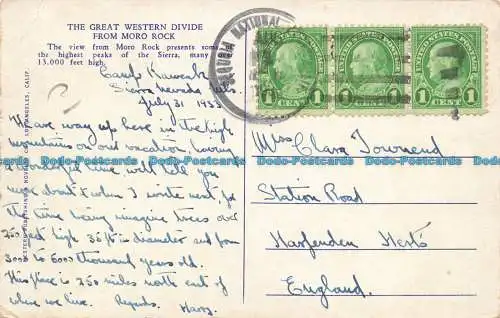 THE GREAT WESTERN DIVIDE
FROM MORO ROCK
The view from Moro Rock presents some of
the highest peaks of the Sierra, many
13,000 feet high.
SEQUOIA NATIONAL
UNITED STATES POSTAGE
1 CENT 1
UNITED STATES POSTAGE
1 CENT 1
UNITED STATES POSTAGE
1 CENT 1
Camp Kaweah
Sierra Nevada Mts.
July 31 1933
We are way up here in the high
mountains on our vacation, having
a wonderful time, will tell you
more about it when I write next, for
the time being imagine trees over
250 feet high 35 ft in diameter and from
3000 to 6000 thousand years old.
This place is 250 miles north east of
where we live. Regards.
Miss Clara Townend
Station Road
Harpenden Herts
England.
WESTERN PUBLISHING & NOVELTY CO., LOS ANGELES, CALIF.
Dado-Postcards.com
Dado-Postcards.com
Dado-Postcards.com
Dado-Postcards.com